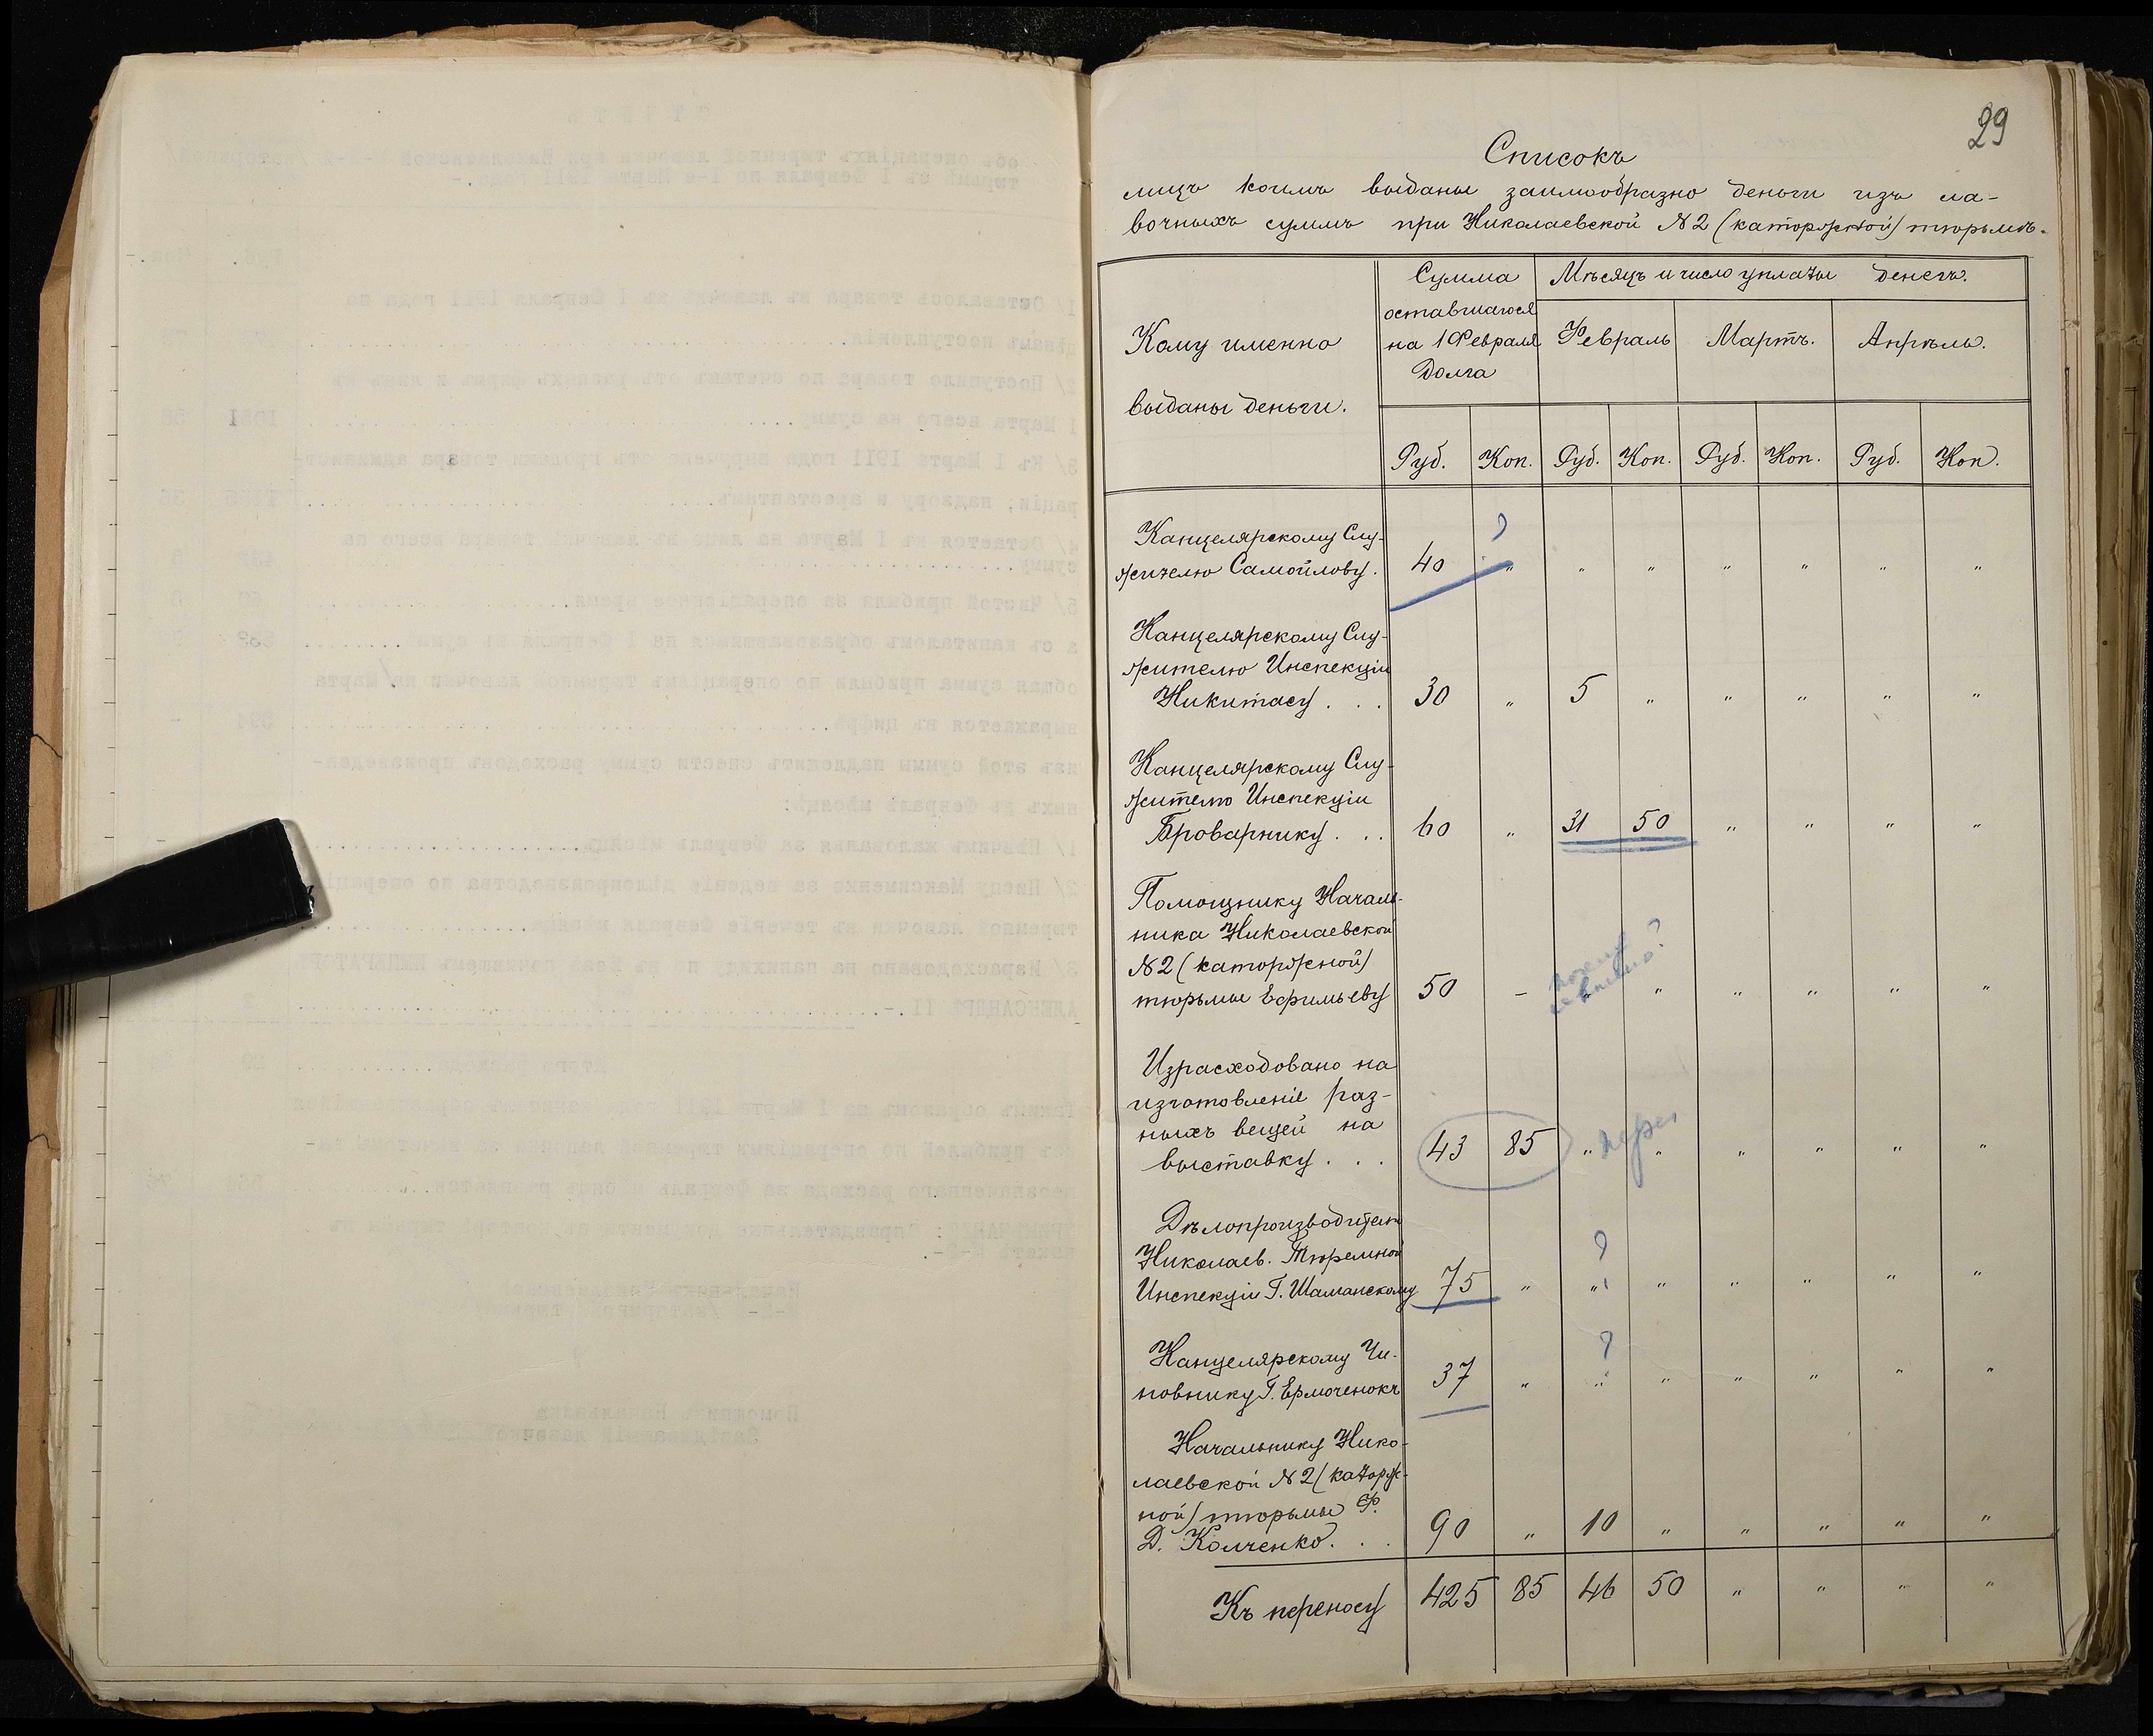 29
Списокъ
лицъ коимъ выданы заимообразно деньги изъ ла-
вочныхъ суммъ при Николаевской №2 (каторжной) тюрьмѣ.
Кому именно
выданы деньги.
Сумма
оставшагося
на 1 Февраля
Долга
Мѣсяцъ и число уплаты денегъ.
Февраль Мартъ. Апрѣль.
Руб. Коп. Руб. Коп. Руб. Коп. Руб. Коп.
?
Канцелярскому Слу-
жителю Самойлову. 40 „ „ „ „ „ „ „
Канцелярскому Слу-
жителю Инспекціи
Никитасу . . . 30 „ 5 „ „ „ „ „
Канцелярскому Слу-
жителю Инспекціи
Броварнику . . . 60 „ 31 50 „ „ „ „
Помощнику Началь-
ника Николаевской
№2 (каторжной)
тюрьмы Ефимьеву 50 - „ „ „ „ „ „
Израсходовано на
изготовленіе раз-
ныхъ вещей на
выставку . . . 43 85 „ „ „ „ „ „
Дѣлопроизводителю
Николаев. Тюремной ?
Инспекціи Г. Шаманскому 75 „ „ „ „ „ „ „
?
Канцелярскому Чи-
новнику Г. Ермоченокъ 37 „ „ „ „ „ „ „
Начальнику Нико-
лаевской №2 (каторж-
ной) тюрьмы Ф.
Д. Колченко. . . 90 „ 10 „ „ „ „ „
Къ переносу 425 85 46 50 „ „ „ „